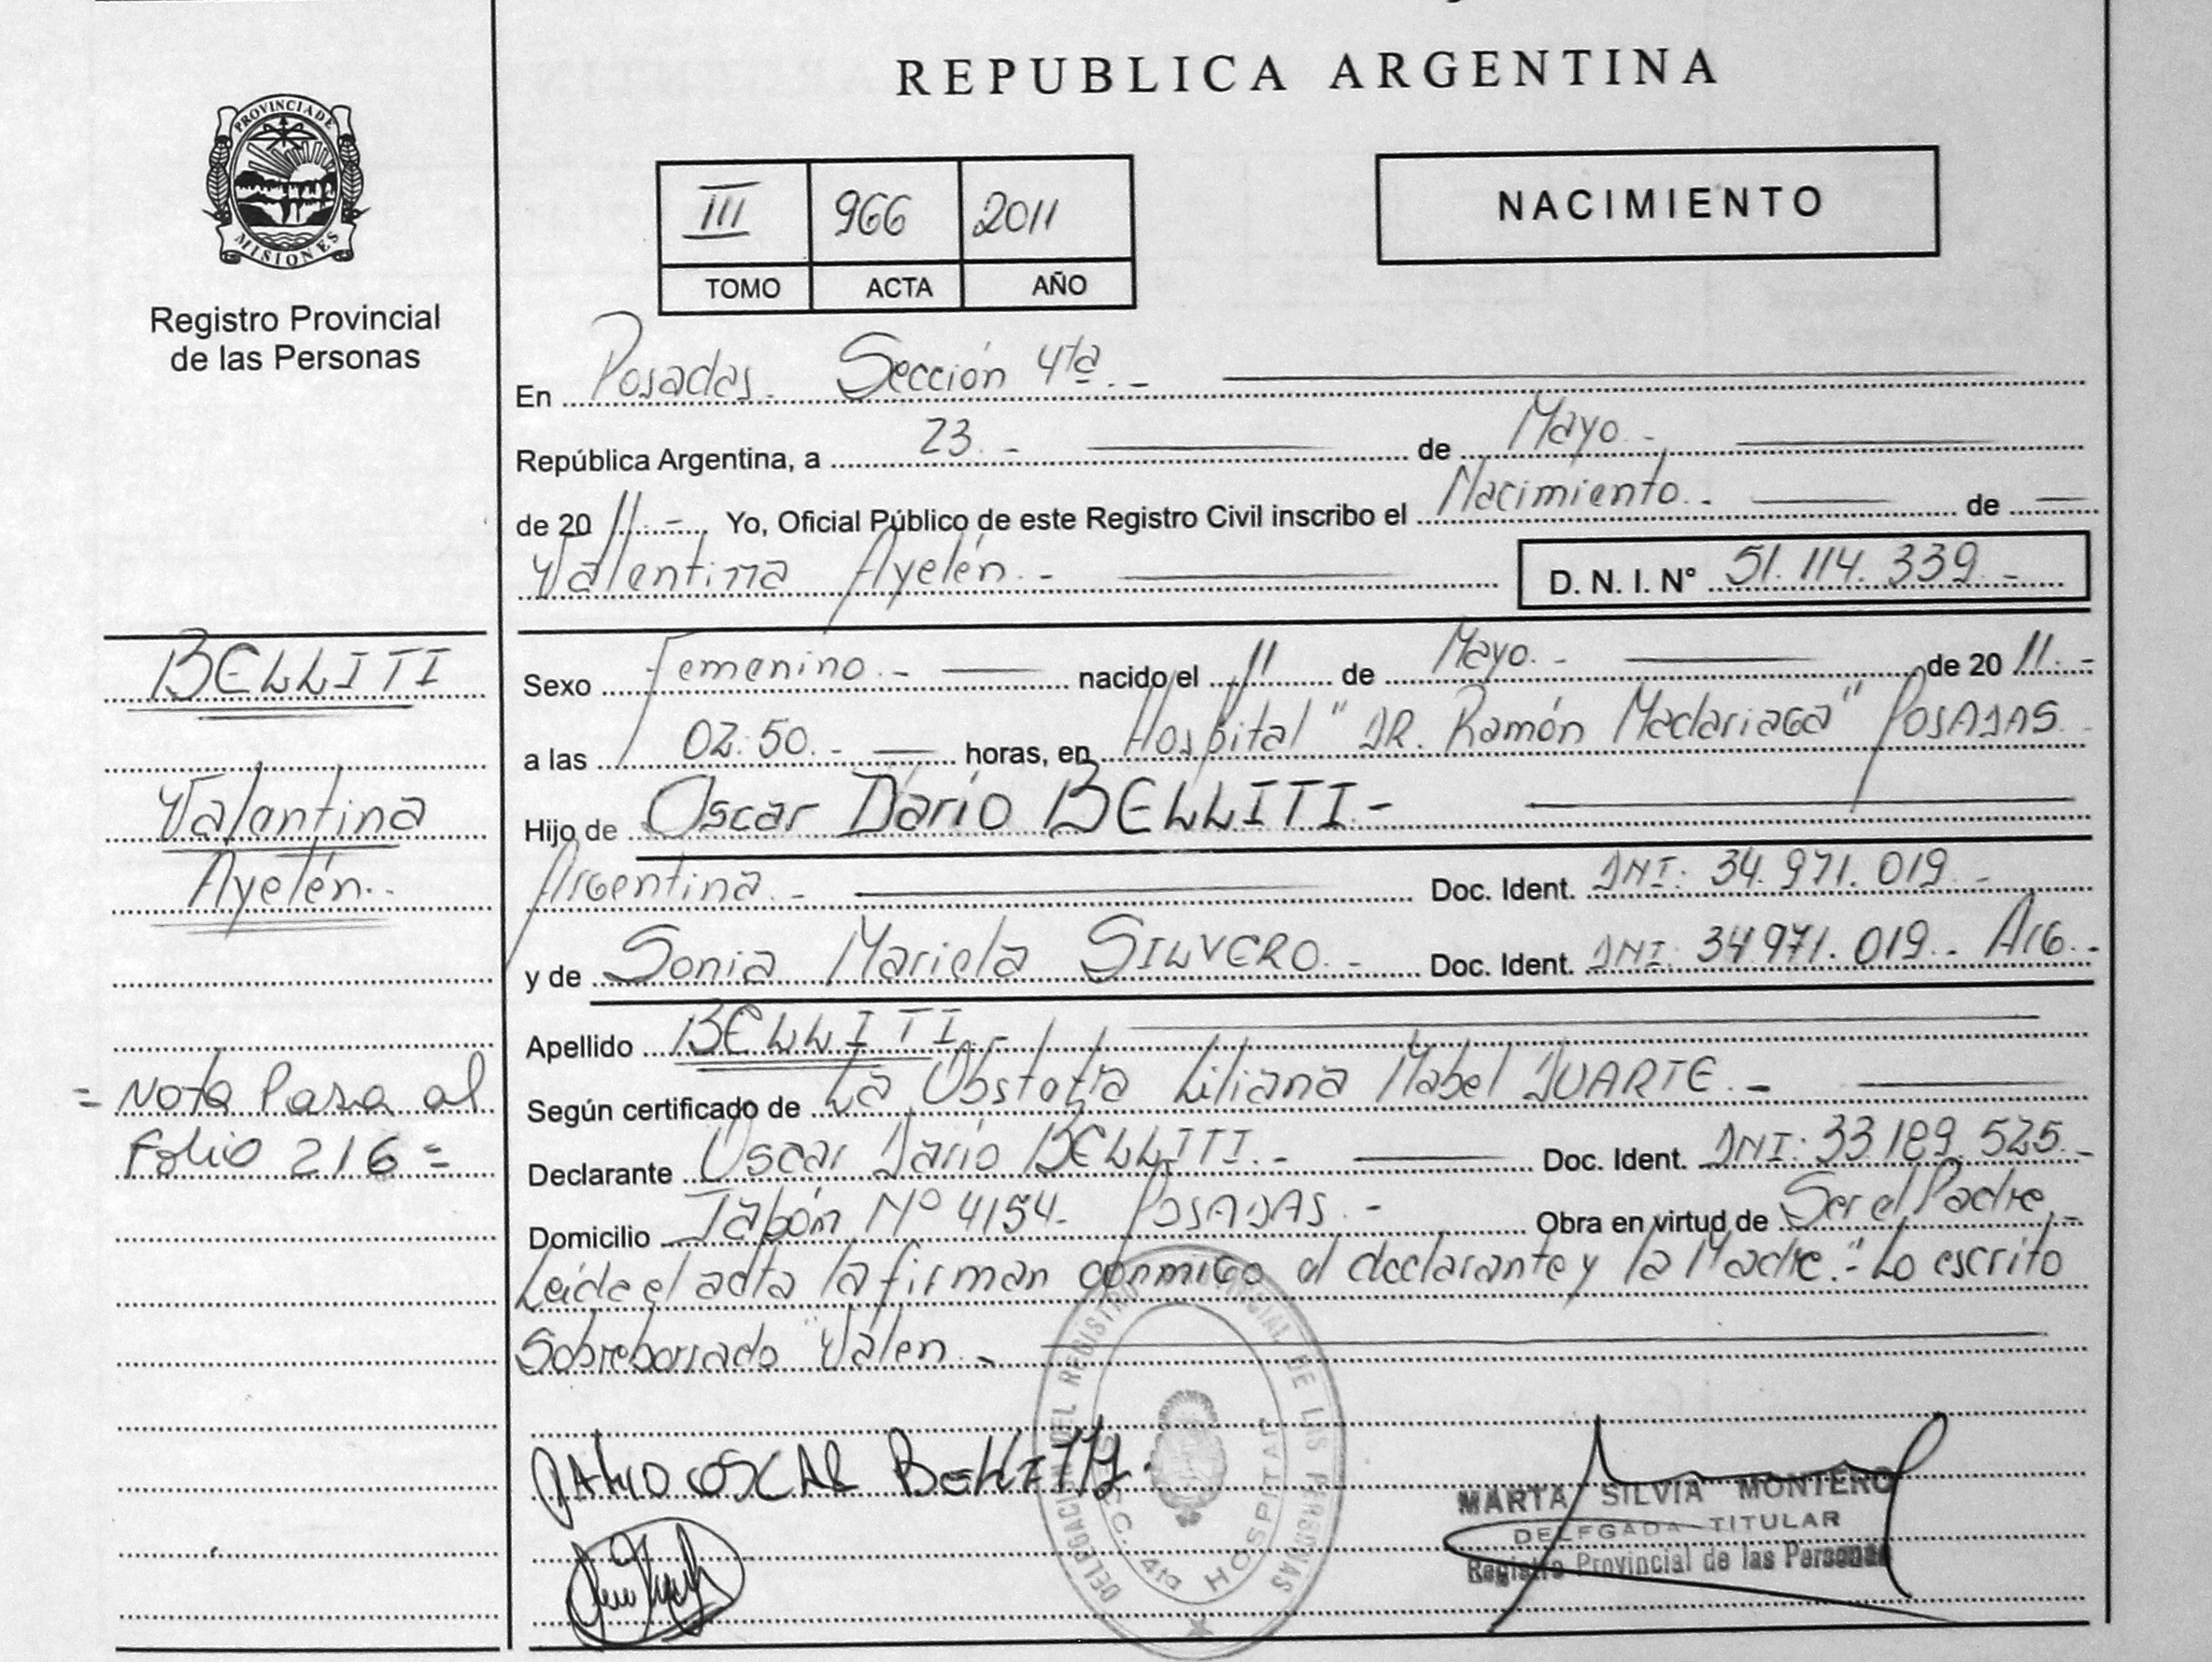 REPUBLICA ARGENTINA
PROVINCIA DE
MISIONES
Registro Provincial
de las Personas
III 966 2011
TOMO ACTA AÑO
NACIMIENTO
En Posadas. Sección 4ta.-
República Argentina, a 23.- de Mayo.-
de 20 11.- Yo, Oficial Público de este Registro Civil inscribo el Nacimiento.- de
Valentina Ayelén.- D. N. I. N° 51.114.339.-
BELLITI
Valentina
Ayelén.-
= Nota Pasa al
Folio 216 =
Sexo Femenino.- nacido el 11 de Mayo.- de 20 11.-
a las 02:50.- horas, en Hospital "DR. Ramón Madariaga" POSADAS.-
Hijo de Oscar Darío BELLITI.-
Argentina.- Doc. Ident. DNI: 34.971.019.-
y de Sonia Mariela SILVERO.- Doc. Ident. DNI: 34.971.019.- Arg.-
Apellido BELLITI.-
Según certificado de La Obstetra Liliana Mabel DUARTE.-
Declarante Oscar Darío BELLITI.- Doc. Ident. DNI: 33.189.525.-
Domicilio Tabón Nº 4154.- POSADAS.- Obra en virtud de Ser el Padre
Leída el acta la firman conmigo el declarante y la Madre.- Lo escrito
Sobreborrado "Valen.-
DARIO OSCAR BELLITI
DELEGACION DEL REGISTRO PROVINCIAL DE LAS PERSONAS
SECC. 4ta HOSPITAL
MARTA SILVIA MONTERO
DELEGADA TITULAR
Registro Provincial de las Personas